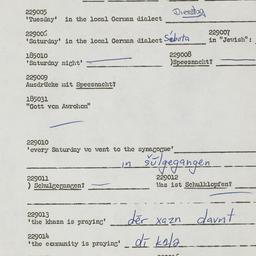 229005
'Tuesday' in the local German dialect Dienstag
229006 229007
'Saturday' in the local German dialect Sabata in "Jewish":
185010 229008
'Saturday night' )Speesnacht?
229009
Ausdrücke mit Speesnacht?
185031
"Gott vun Awrohom"
229010
'every Saturday we went to the synagogue'
in šūlgegangen
229011 229012
) Schulgegangen? Was ist Schulklopfen?
229013
'the khazn is praying' dêr xazn davnt
229014
'the community is praying' dī